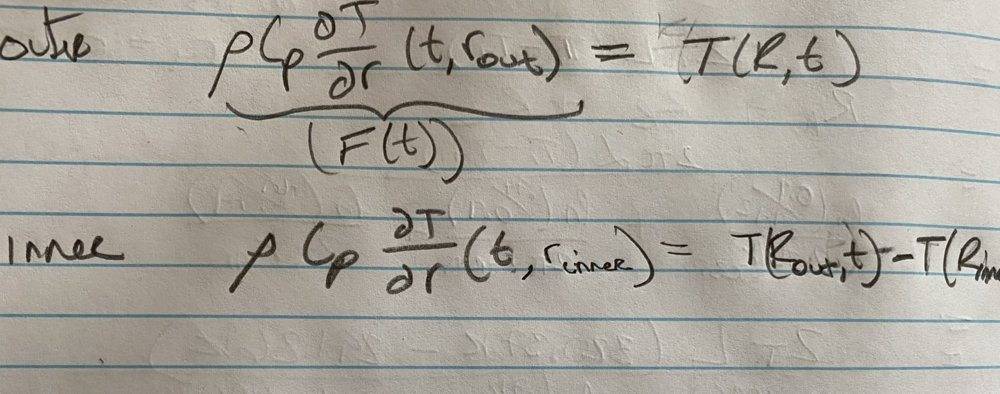 outer ρCp ∂T/∂r (t, rout) = T(R, t)
(F(t))
inner ρ Cp ∂T/∂r (t, rinner) = T(Rout, t) - T(Rinn